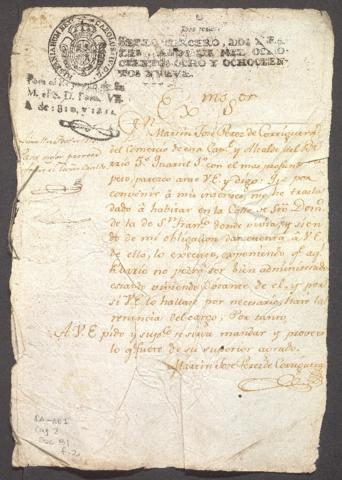 Dos reales
SELLO TERCERO, DOS REA
LES, AÑOS DE MIL OCHO
CIENTOS OCHO Y OCHOCIEN
TOS NUEVE.
Para el Reynado de
M. el S. D. Fern. VII.
A de 1810, y 1811
Exmo Sor
D.n Martin José Perez de Cortiguera
del Comercio de esta Cap.l y Alcalde del Ba
rrio 5.º Quartel 3.º con el mas profundo
pero parezco ante VE y digo: Qe por
convenir á mis intereses, me he trasla
dado à habitar en la Calle de Sto Dom.o
de la de Sn Fran.co donde vivia; y sien
do de mi obligacion dar cuenta a V.E
de ello, lo executo, exponiendo qe aql
Barrio no podrá ser bien administrado
estando viviendo distante de el, y por
si VE lo hallase por necesario hace la
renuncia del cargo. Por tanto
A V E pido y supco se sirva mandar y proveer
lo qe fuere de su superior agrado.
Martin José Perez de Cortiguera
CA-AD1
Caj 2
Doc 81
f-2